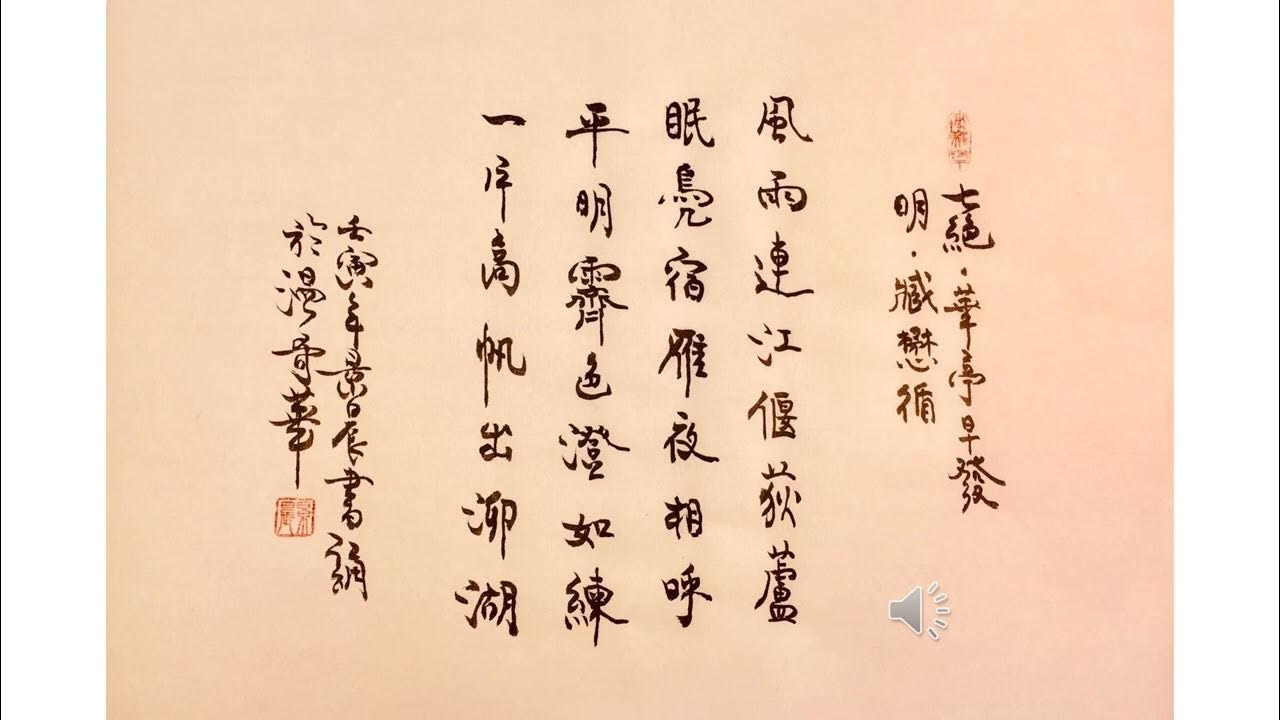 七絕·華亭早發
明·臧懋循
風雨連江偃荻蘆
眠鳧宿雁夜相呼
平明霽色澄如練
一片高帆出泖湖
壬寅年景辰書誦
於溫哥華